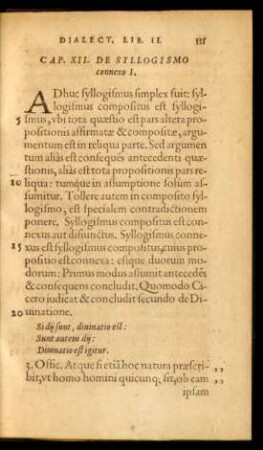 DIALECT. LIB. II.
CAP. XII. DE SYLLOGISMO
connexo I.
ADhuc syllogismus simplex fuit: syl-
logismus compositus est syllogi-
5 smus, vbi tota quæstio est pars altera pro-
positionis affirmatæ & compositæ, argu-
mentum est in reliqua parte. Sed argum-
tum aliàs est consequẽs antecedenti quæ-
stionis, aliàs est tota propositionis pars re-
10 liqua: tumq́ue in assumptione solùm as-
sumitur. Tollere autem in composito syl-
logismo, est specialem contradictionem
ponere. Syllogismus compositus est con-
nexus aut disiunctus. Syllogismus conne-
15 xus est syllogismus compositus, cuius pro-
positio est connexa: estque duorum mo-
dorum: Primus modus assumit antecedẽs
& consequens concludit. Quomodo Ci-
cero iudicat & concludit secundo de Di-
20 uinatione.
Si dij sunt, diuinatio est:
Sunt autem dij:
Diuinatio est igitur.
3. Offic. Atque si etiã hoc natura præscri-
bit, vt homo homini quicunq; sit, ob eam
ipsam